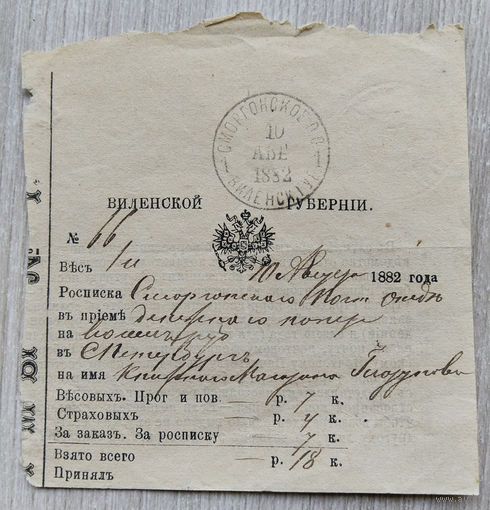 СМОРГОНСКОЕ П.О.
10
АВГ
1882
ВИЛЕНСК. ГУБ.
1
ВИЛЕНСКОЙ ГУБЕРНІИ.
№ 66
Вѣсъ 1 л
10 Августа 1882 года
Росписка Сморгонскаго Почт
въ пріемѣ денежнаго
на
въ СПетербургъ
на имя Книжнаго Магазина
Вѣсовыхъ. Прог и пов — р. 7 к.
Страховыхъ — р. 4 к.
За заказ. За росписку — 7 к.
Взято всего — р. 18 к.
Принялъ